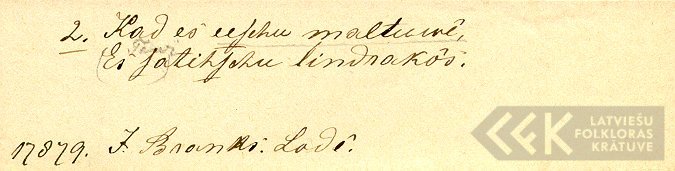 2. Kad es eeschu maltuwê,
Es satihschu lindrakôs.
17879. J. Branks. Lodê.
LATVIEŠU
FOLKLORAS
KRĀTUVE